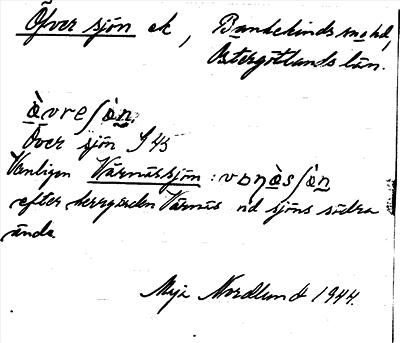 Öfver sjön ek, Bankekinds snhd,
Östergötlands län.
àvreʃòn.
Över sjön J 45
Vanligen Värnässjön: vɒŋàsʃòn
efter herrgården Värnäs vid sjöns södra
ända
Maja Nordlund 1944.